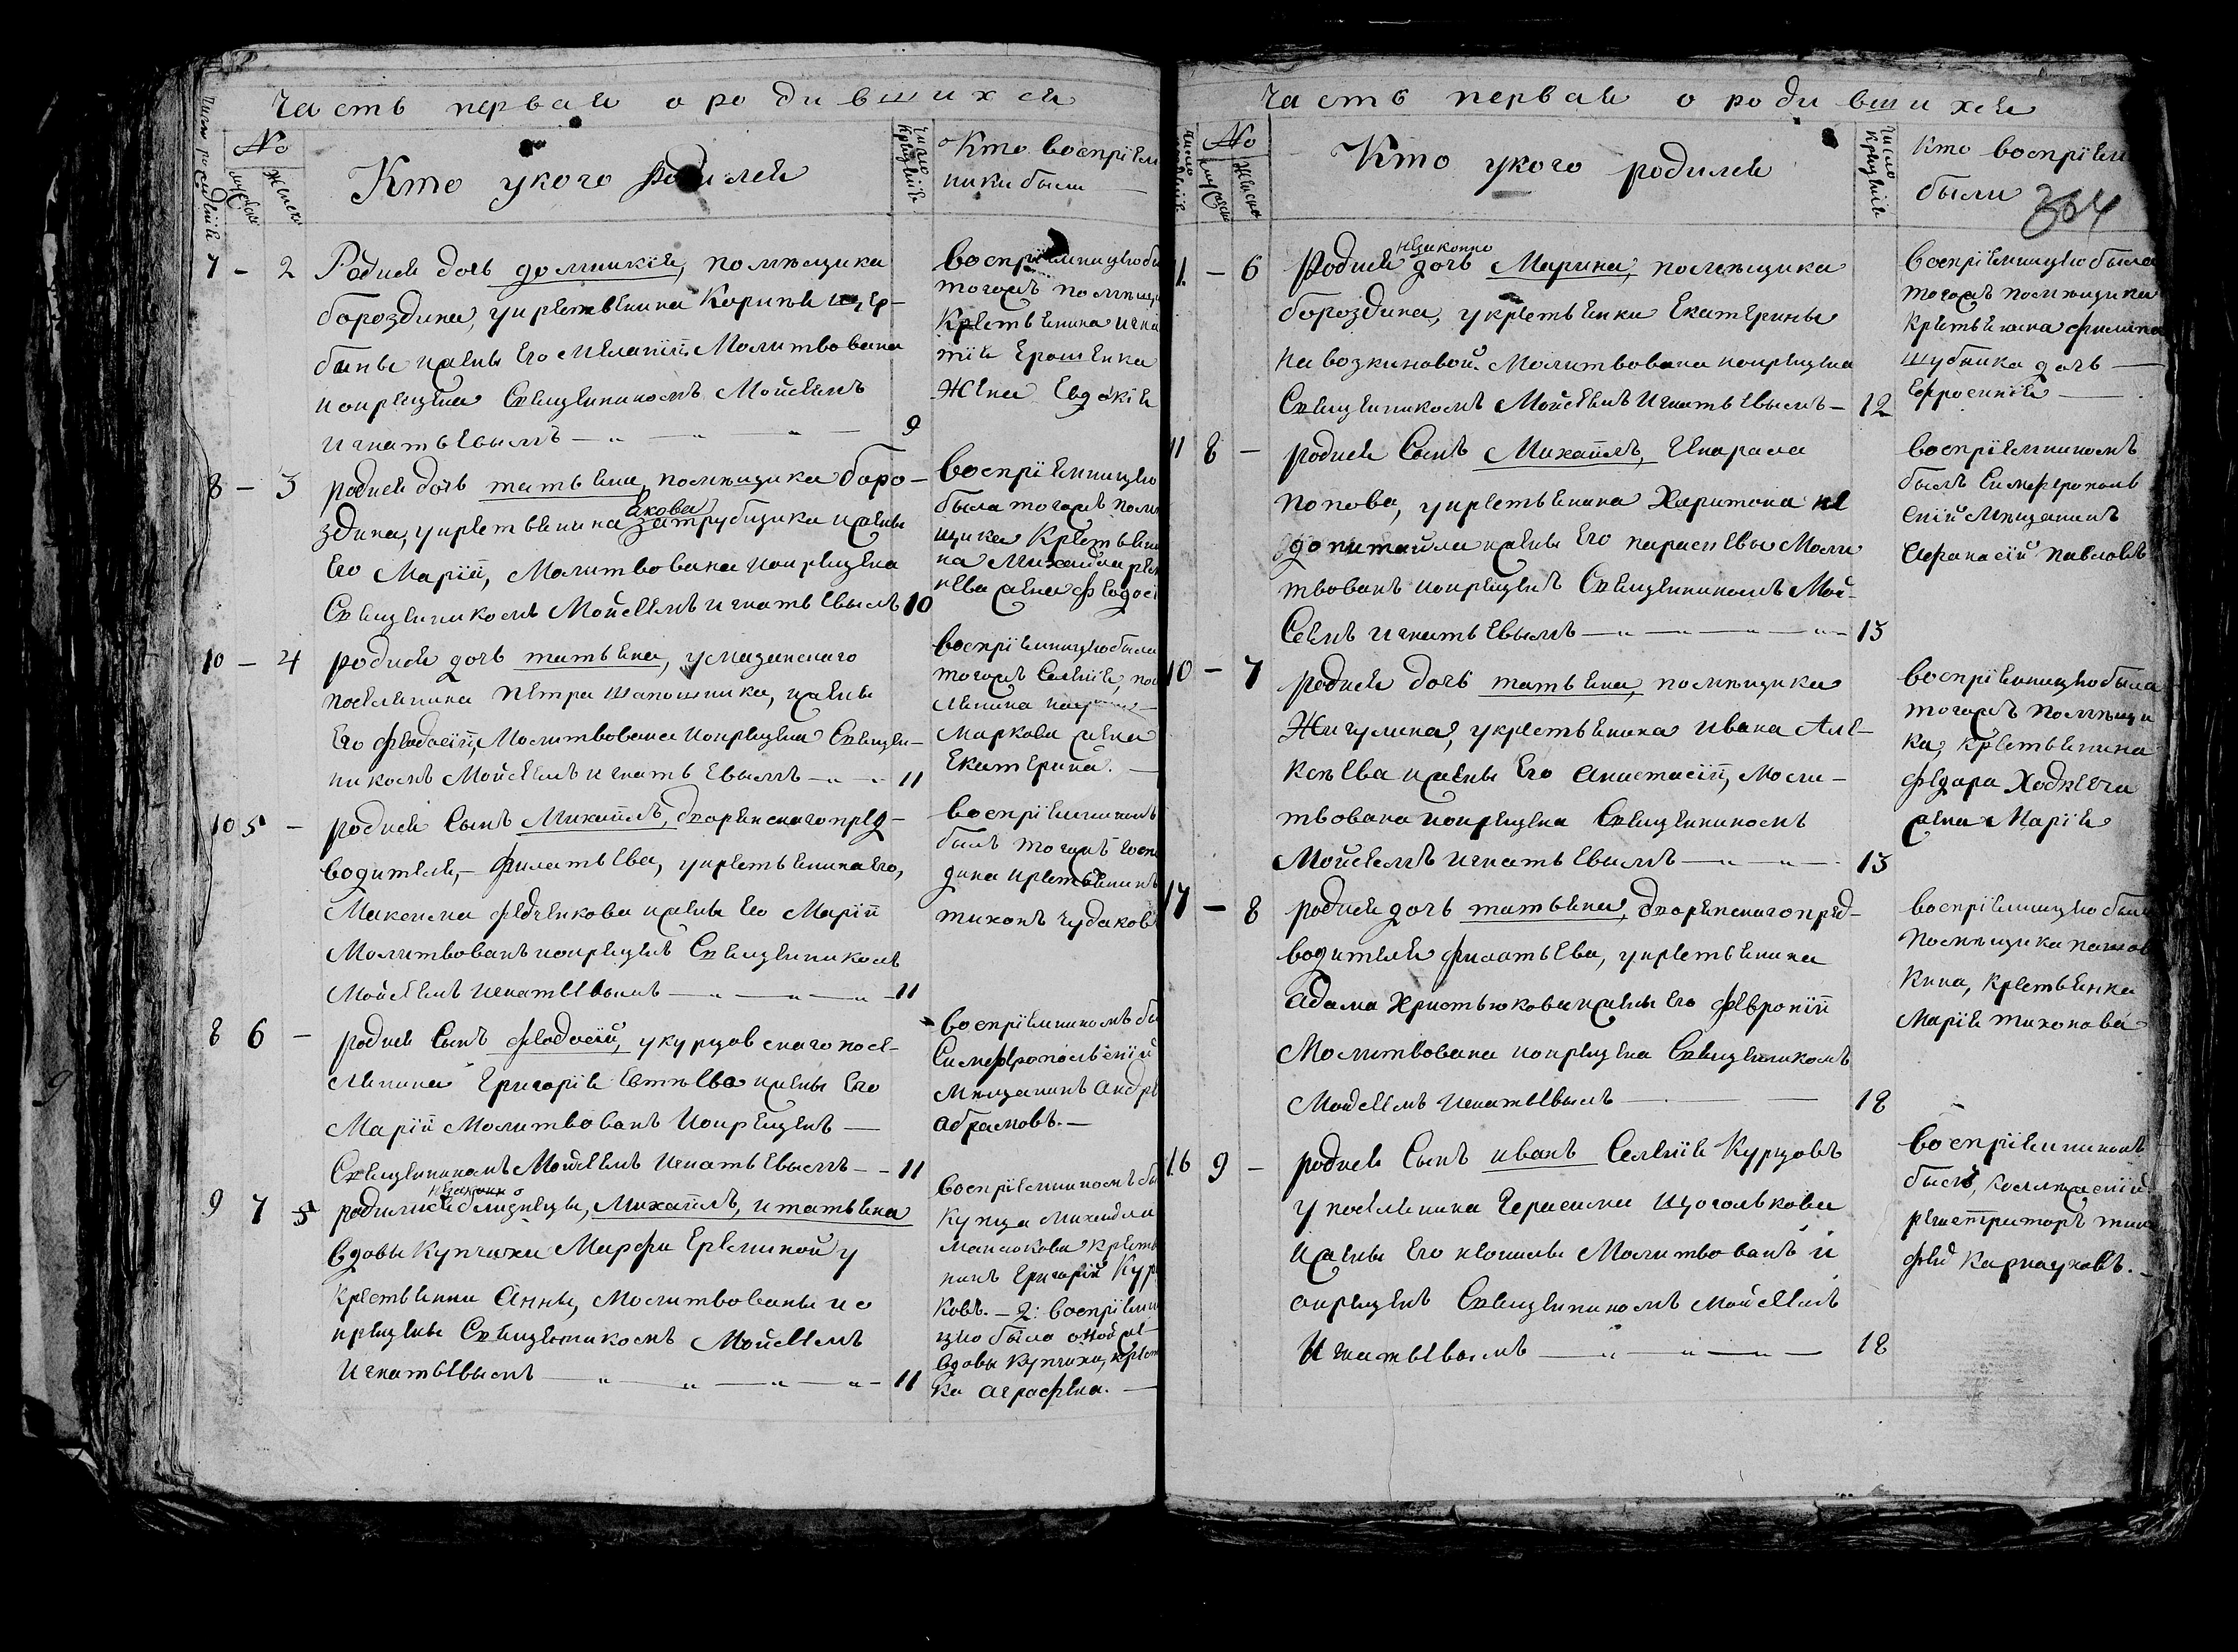 Часть первая о родившихся
Число рожденія
№
Мужеск
Женск
Кто укого родился
Число крещенія
Кто воспріем
ники были
7 – 2 Родися дочь домникія, помѣщика
бороздина, укрестьянина Корнѣя щер-
бины ижены Его Меланіи, Молитвована
икрещена Священникомъ Мойсеемъ
игнатьевымъ 9
воспріемницею бы
тогожъ помѣщи
Крестьянина игна
тія Ерошенка
Жена Евдокія
8 – 3 родися дочь татьяна, помѣщика боро-
якова
здина, укрестьянина затрубщика ижены
Его Маріи, Молитвована икрещена
Священникомъ Мойсеемъ игнатьевымъ 10
воспріемницею
была тогожъ помѣ
щика Крестьяни
на Михайла
жена Федось
10 – 4 родися дочь татьяна, умазанскаго
поселянина петра шапошника, ижены
Его феодосіи, Молитвована икрещена Священ-
никомъ Мойсеемъ игнатьевымъ 11
воспріемницею была
тогожъ Селенія, пос
лянина
Маркова жена
Екатерина.
10 5 – родися Сынъ Михаилъ, дворянскаго пред-
водителя, филатьева, укрестьянина Его,
Максима федченкова ижены Его Маріи
Молитвованъ икрещенъ Священникомъ
Мойсеемъ игнатьевымъ 11
воспріемникомъ
былъ тогожъ госпо
дина крестьянинъ
тихонъ чудаков
8 6 – родися Сынъ феодосій, укурцовскаго посе-
лянина григорія Евтѣева ижены Его
Маріи Молитвованъ Икрещенъ
Священникомъ Мойсеемъ игнатьевымъ 11
воспріемникомъ бы
Симферопольскій
Мѣщанинъ андре
абрамовъ.
незаконно
9 7 5 родилися близнецы, Михаилъ, итатьяна
вдовы Купчихи Марфы Ереминой у
крестьянки Анны, Молитвованы ио
крещены Священникомъ Мойсеемъ
Игнатьевымъ 11
воспріемникомъ бы
Купца Михайла
крестья
нинъ григорій Кур
ковъ. – 2: воспріемни
цею была оной же
вдовы Купчихи, крестьян
ка аграфена.
Часть первая о родившихся
№
Мужеск
Женска
Кто укого родился
Число крещенія
Кто воспріемн
были
364
незаконно
11 – 6 Родися дочь Марина, помѣщика
бороздина, укрестьянки Екатерины
навозкиновой. Молитвована икрещена
Священникомъ Мойсеемъ Игнатьевымъ 12
воспріемницею была
тогожъ помѣщика
крестьянина филипа
шубника дочь
Ефросинія
11 8 – родися Сынъ Михаилъ, генерала
попова, укрестьянина Харитона не
допитайла ижены Его парасковьи Моли
твованъ икрещенъ Священникомъ Мой-
Сеемъ игнатьевымъ 13
воспріемникомъ
былъ Симферополь
скій Мѣщанинъ
афанасій павловъ
10 – 7 родися дочь татьяна, помѣщика
Жигулина, укрестьянина ивана Але-
ксѣева ижены Его анастасіи, Моли-
твована икрещена Священникомъ
Мойсеемъ игнатьевымъ 13
воспріемницею была
тогожъ помѣщи
ка, крестьянина
федора Ходнева
жена Марія
17 – 8 родися дочь татьяна, дворянскаго пред-
водителя филатьева, укрестьянина
адама христьюкова ижены Его февроніи
Молитвована икрещена Священникомъ
Мойсеемъ Игнатьевымъ 18
воспріемницею была
помѣщика
кина, крестьянка
Марія тихонова
16 9 – родися Сынъ иванъ Селенія Курцовъ
у поселянина герасима щоголькова
ижены Его Молитвованъ и
окрещенъ Священникомъ мойсеемъ
Игнатьевымъ 18
воспріемникомъ
былъ, коллежскій
регистраторъ тимо
фей Карнауховъ.